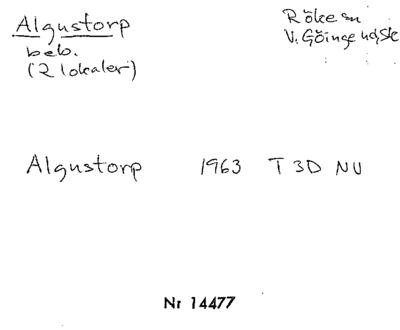 Algustorp
beb.
(2 lokaler)
Röke sn
V. Göinge hd, Sk
Algustorp 1963 T 3D NV
Nr 14477